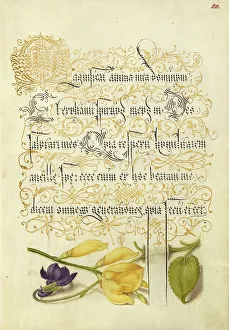 20.
Magnificat anima mea dominum
Et exultavit spiritus meus in Deo
salutari meo Quia respexit humilitatem
ancille sue: ecce enim ex hoc beatam me
dicent omnes generationes quia fecit